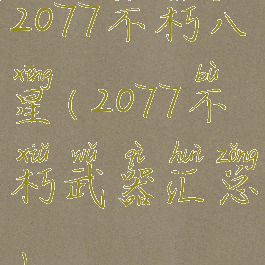 2077不朽八
xīng bù
星(2077不
xiǔ wǔ qì huì zǒng
朽武器汇总
)